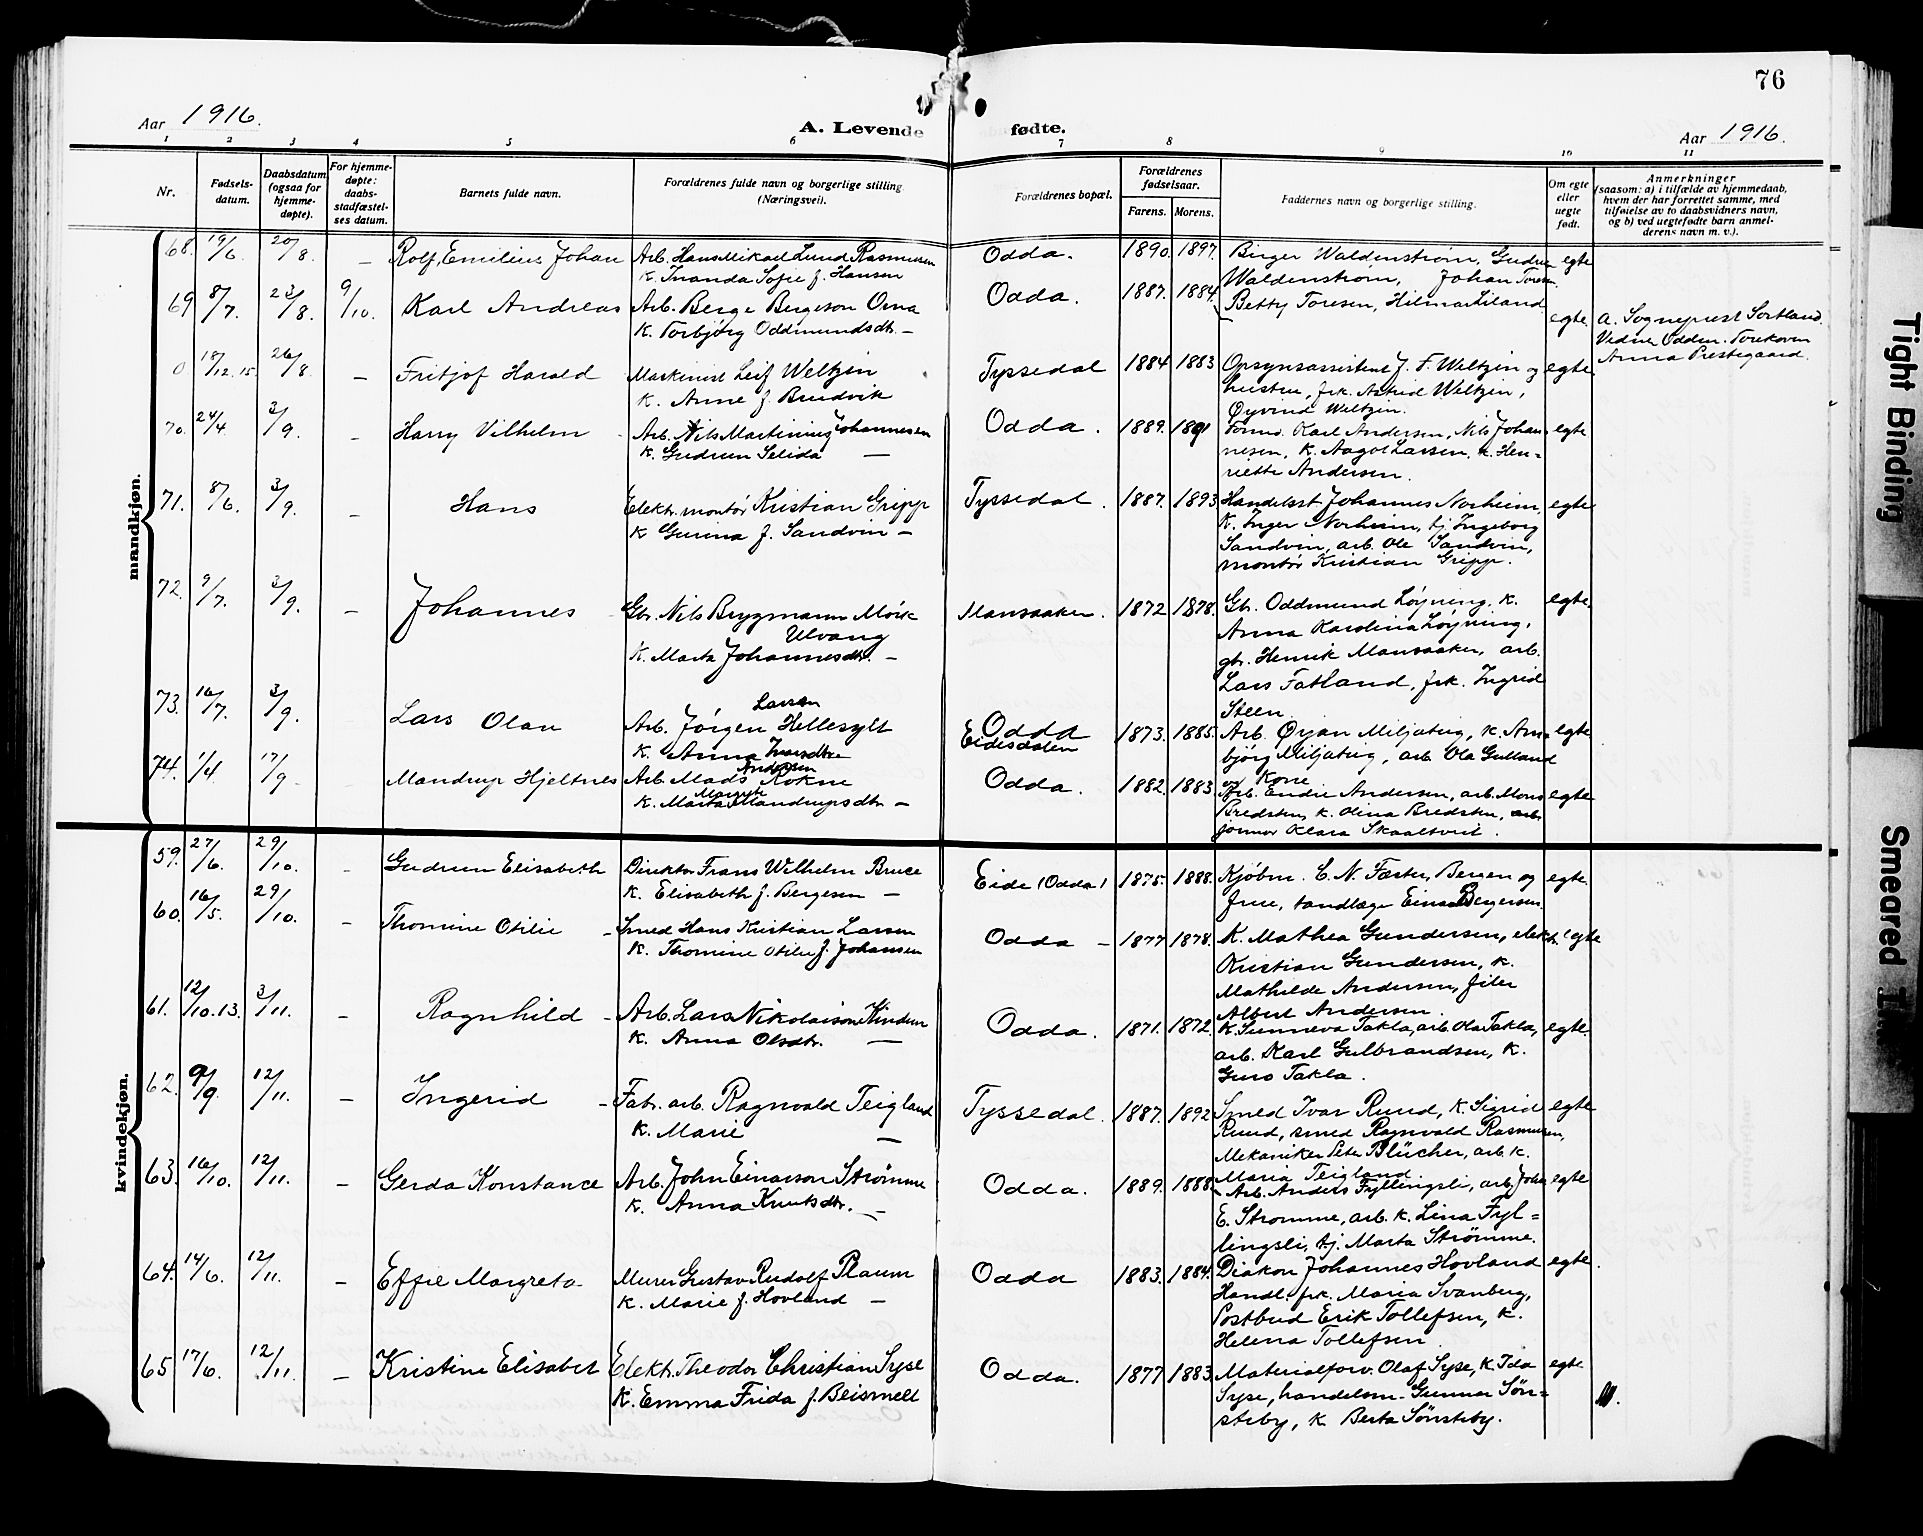 76
Aar 1916.
A. Levende fødte.
Aar 1916.
1 2 3 4 5 6 7 8 9 10 11
Nr.
Fødsels-
datum.
Daabsdatum
(ogsaa for
hjemme-
døpte).
For hjemme-
døpte:
daabs-
stadfæstel-
ses datum.
Barnets fulde navn.
Forældrenes fulde navn og borgerlige stilling.
(Næringsvei).
Forældrenes bopæl.
Forældrenes
fødselsaar.
Farens. Morens.
Faddernes navn og borgerlige stilling.
Om egte
eller
uegte
født.
Anmerkninger
(saasom: a) i tilfælde av hjemmedaab,
hvem der har forrettet samme, med
tilføielse av to daabsvidners navn,
og b) ved uegtefødte barn anmel-
derens navn m. v.).
mandkjøn.
68. 19/6. 20/8. – Rolf Emilius Johan Arb. Hans Mikael Lund Rasmussen Odda. 1890. 1897. Birger Waldenstrøm, Gudrun egte
K. Inanda Sofie f. Hansen Waldenstrøm, Johan Toresen
69 8/7. 23/8. 9/10. Karl Andreas Arb. Berge Bergeson Odda. 1887. 1884. Betty Toresen, Hilmar Liland egte.
K. Torbjørg Oddmundsdtr. –
a. Sogneprest Sortland.
Vidner Odden. Torekoven
Anna Prestegaard.
0 18/12.15. 26/8. – Fritjof Harald Maskinist Leif Weltzin Tyssedal 1884 1883 Opsynsassistent J. F. Weltzin og egte.
K. Anne f. Brudvik hustru, frk. Astrid Weltzin,
Øyvind Weltzin.
70. 24/4. 3/9. – Harry Vilhelm Arb. Nils Martinius Johannesen Odda. 1889. 1891 Formd. Karl Andersen, Nils Johan- egte
K. Gudrun Selida – nesen, K. Aagot Larsen, K. Hen-
riette Andersen.
71. 8/6. 3/9. – Hans Elektr. montør Kristian Gripp Tyssedal. 1887. 1893. Handelsst Johannes Norheim, egte.
K Gurina f. Sandvin – K. Inger Norheim, tj. Ingeborg
Sandvin, arb. Ole Sandvin,
montør Kristian Gripp.
72. 9/7. 3/9. – Johannes Gbr. Nils Brygmann Mörk Mansaaker. 1872 1878. Gbr. Oddmund Løyning, K. egte.
Ulvang Anna Karolina Løyning,
K. Marta Johannesdtr. – gbr. Henrik Mansaaker, arb.
Lars Fatland, frk. Ingrid
Steen.
73. 16/7. 3/9. Lars Olav Arb. Jørgen Larsen Hellesylt Odda Eidesdalen 1873. 1885. Arb. Ørjan Miljeteig, K. Am- egte
K. Anna Ivarsdtr bjørg Miljeteig, arb. Ola Gulland
og Kone
74. 1/4. 17/9. Mandrup Hjeltnes Arb. Mads Andersen Rokne Odda. 1882. 1883. Arb. Endre Andersen, arb. Mons egte
K. Marta Margrete Mandrupsdtr. – Bredsten, K. Olina Bredsten, arb.
formor Klara Skaaltveit.
kvindekjøn.
59. 27/6. 29/10. – Gudrun Elisabeth Direktør Frans Wilhelm Bruce Eide (Odda) 1875. 1888. Kjøbm. C. N. Fæster, Bergen og egte.
K. Elisabeth f. Bergesen – frue, tandlæge Einar Bergersen.
60. 16/5. 29/10. – Thomine Otilie – Smed Hans Kristian Larsen Odda – 1877 1878. K. Mathea Gundersen, elektr. egte
K. Thomine Otilie f. Johansen Kristian Gundersen, K.
Mathilde Andersen, filer
Albert Andersen.
61. 12/10.13. 3/11. – Ragnhild – Arb. Lars Nikolaison Kindem Odda. 1871. 1872. K. Sunneva Takla, arb. Ola Takla, egte.
K. Anna Olsdtr. – arb. Karl Gulbrandsen, K.
Guro Takla.
62. 9/9. 12/11. – Ingerid – Fabr. arb. Ragnvald Teigland Tyssedal. 1887. 1892 Smed Ivar Ruud, K. Sigrid egte
K. Marie – Ruud, smed Ragnvald Rasmussen,
Mekaniker Peter Blücher, arb. K.
Maria Teigland
63. 16/10. 12/11. – Gerda Konstance Arb. John Einarson Strømme Odda. 1889. 1888. Arb. Anders Fyllingsli, arb. John egte
K. Anna Knutsdtr. – E. Strømme, arb. K. Lina Fyl=
lingsli, tj. Marta Strømme.
64. 14/6. 12/11. – Effie Margreta Murer Gustav Rudolf Plaum Odda 1883. 1884. Diakon Johannes Hovland egte.
K. Marie f. Hovland – Handl. frk. Maria Svanberg,
Postbud Erik Tollefsen, K.
Helena Tollefsen
65 17/6. 12/11. – Kristine Elisabet Elektr. Theodor Christian Syse Odda. 1877 1883. Materialforv. Olaf Syse, K. Ida egte
K. Emma Frida f. Beismell Syse, handelsm. Gunnar Søn=
steby, K Berta Sønsteby.
Tight Binding
Smeared